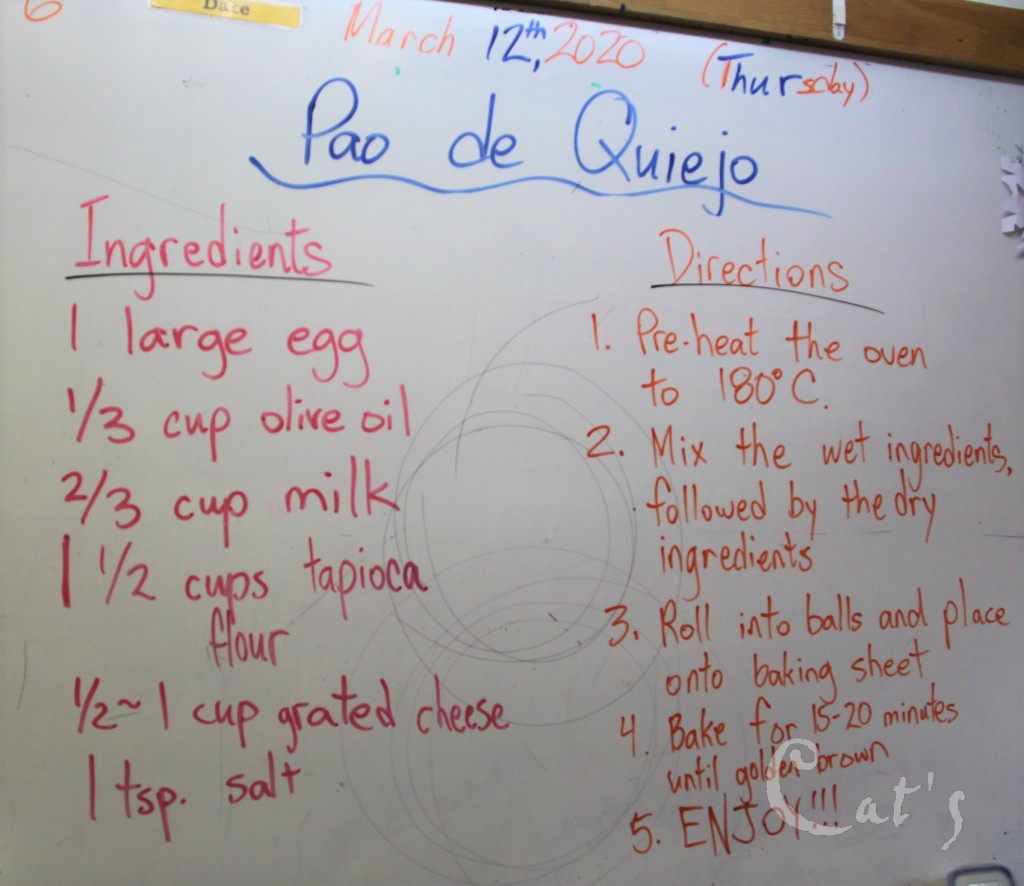 6
Date
March 12th, 2020 (Thursday)
Pao de Quiejo
Ingredients
1 large egg
1/3 cup olive oil
2/3 cup milk
1 1/2 cups tapioca
flour
1/2~1 cup grated cheese
1 tsp. salt
Directions
1. Pre-heat the oven
to 180°C.
2. Mix the wet ingredients,
followed by the dry
ingredients
3. Roll into balls and place
onto baking sheet
4. Bake for 15-20 minutes
until golden brown
5. ENJOY!!!
Cat's